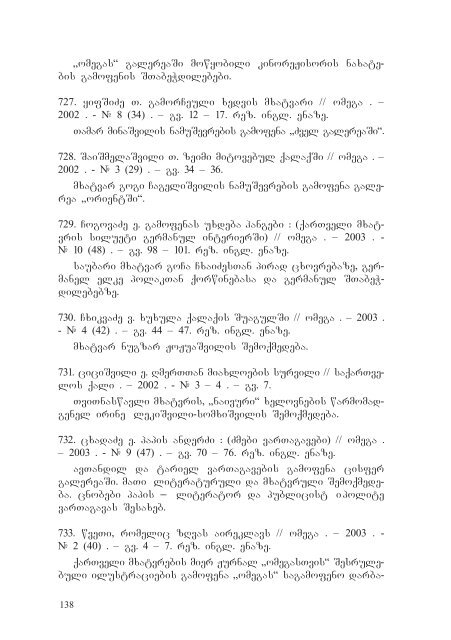 „ომეგას“ გალერეაში მოწყობილი კინორეჟისორის ნახატე-
ბის გამოფენის შთაბეჭდილებები.
727. ყიფშიძე თ. გამორჩეული ხედვის მხატვარი // ომეგა . –
2002 . - № 8 (34) . – გვ. 12 – 17. რეზ. ინგლ. ენაზე.
თამარ მინაშვილის ნამუშევრების გამოფენა „ძველ გალერეაში“.
728. შაიშმელაშვილი თ. ზეიმი მიტოვებულ ქალაქში // ომეგა . –
2002 . - № 3 (29) . – გვ. 34 – 36.
მხატვარ გოგი ჩაგელიშვილის ნამუშევრების გამოფენა გალე-
რეა „ორიენტში“.
729. ჩოგოვაძე ე. გამოფენას უხდება ჰანგები : (ქართველი მხატ-
ვრის სილუეტი გერმანულ ინტერიერში) // ომეგა . – 2003 . -
№ 10 (48) . – გვ. 98 – 101. რეზ. ინგლ. ენაზე.
საუბარი მხატვარ გოჩა ჩხაიძესთან პირად ცხოვრებაზე, გერ-
მანელ ელკე პოლაკთან ქორწინებასა და გერმანულ შთაბეჭ-
დილებებზე.
730. ჩხიკვაძე ე. ხუხულა ქალაქის შუაგულში // ომეგა . – 2003 .
- № 4 (42) . – გვ. 44 – 47. რეზ. ინგლ. ენაზე.
მხატვარ ნუგზარ ჟოჟუაშვილის შემოქმედება.
731. ციციშვილი ე. ღმერთთან მიახლოების სურვილი // საქართვე-
ლოს ქალი . – 2002 . - № 3 – 4 . – გვ. 7.
თვითნასწავლი მხატვრის, „ნაივური“ ხელოვნების წარმომად-
გენელ ირინე ლეკიშვილი-სომხიშვილის შემოქმედება.
732. ცხადაძე ე. პაპის ანდერძი : (ძმები ვართაგავები) // ომეგა .
– 2003 . - № 9 (47) . – გვ. 70 – 76. რეზ. ინგლ. ენაზე.
ავთანდილ და ტარიელ ვართაგავების გამოფენა ცისფერ
გალერეაში. მათი ლიტერატურული და მხატვრული შემოქმედე-
ბა. ცნობები პაპის – ლიტერატორ და პუბლიცისტ იპოლიტე
ვართაგავას შესახებ.
733. წვეთი, რომელიც ზღვას აირეკლავს // ომეგა . – 2003 . -
№ 2 (40) . – გვ. 4 – 7. რეზ. ინგლ. ენაზე.
ქართველი მხატვრების მიერ ჟურნალ „ომეგასთვის“ შესრულე-
ბული ილუსტრაციების გამოფენა „ომეგას“ საგამოფენო დარბა-
138